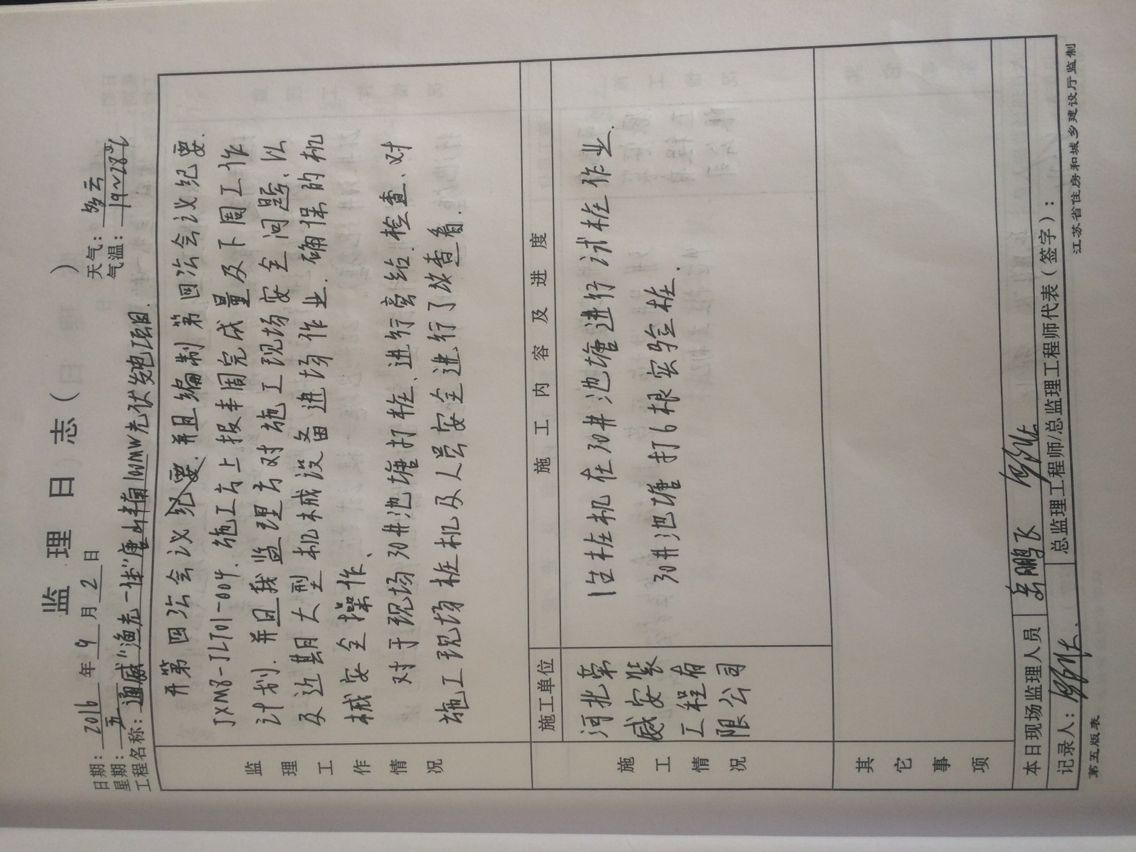 监理日志(日)
日期: 2016 年 9 月 2 日
天气: 多云
星期: 五
气温: 19~28℃
工程名称: 通威"渔光一体"唐山丰南100MW光伏发电项目.
监理工作情况
开第四次会议纪要.并且编制第四次会议纪要.
JXMB-JL701-004.施工方上报本周完成量及下周工作
计划.并且我监理方对施工现场安全问题、以
及近期大型机械设备进场作业.确保的机
械安全操作、
对于现场30井池塘打桩、进行总结.检查.对
施工现场桩机及人员安全进行了
施工情况
施工单位
施工内容及进度
河北第
威安装
工程有
限公司
1台桩机在30井池塘进行试桩作业.
30井池塘打6根实验桩.
其它事项
本日现场监理人员
鹏飞
记录人:
总监理工程师/总监理工程师代表(签字):
第五版表
江苏省住房和城乡建设厅监制